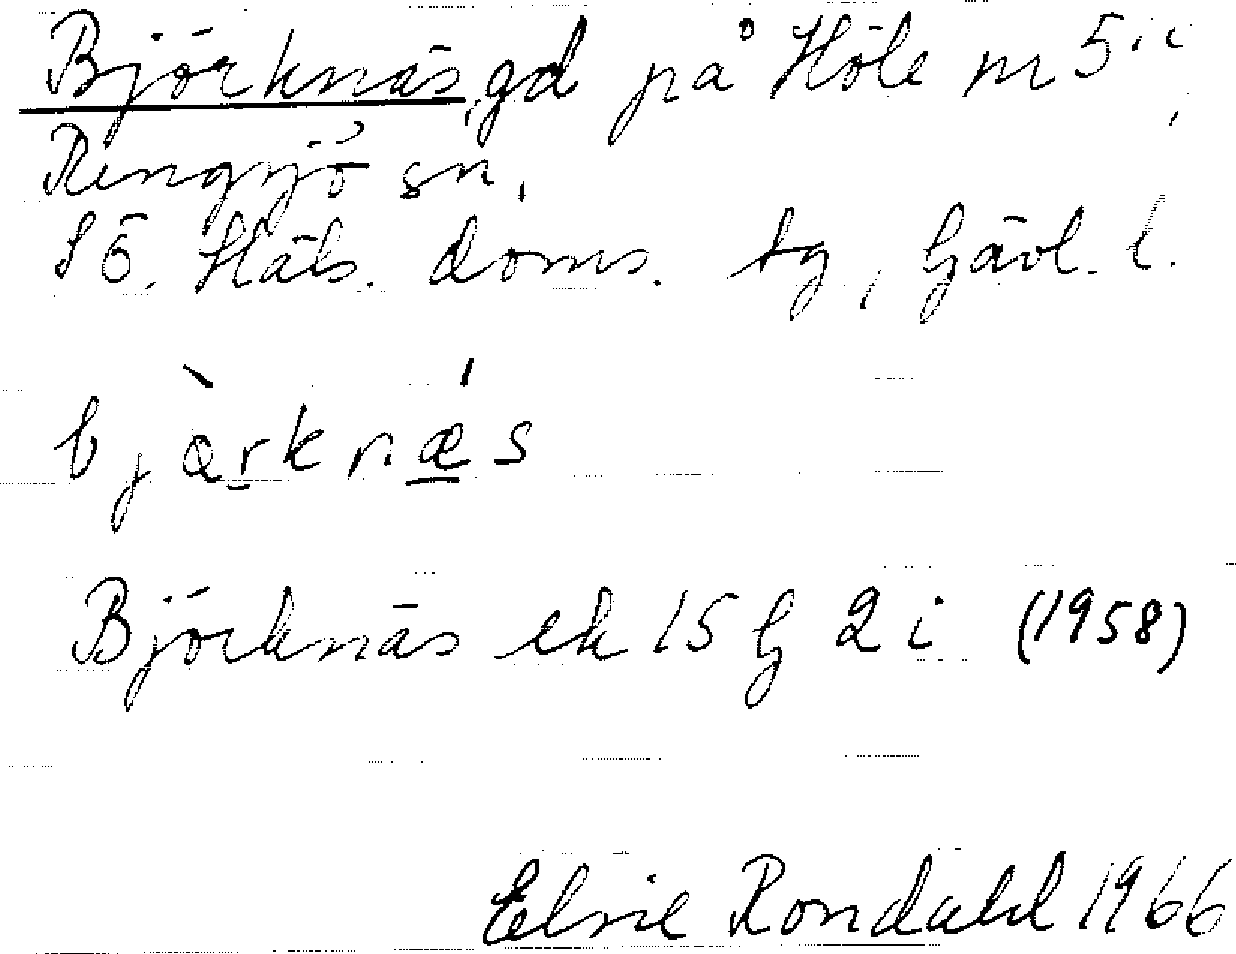 Björknäs, gd på Höle nr 5
Rengsjö sn,
Sö. Häls. doms. tg, Gävl. l.
bjàrknǽs
Björknäs ek 15 G 2 i (1958)
Elsie Rondahl 1966